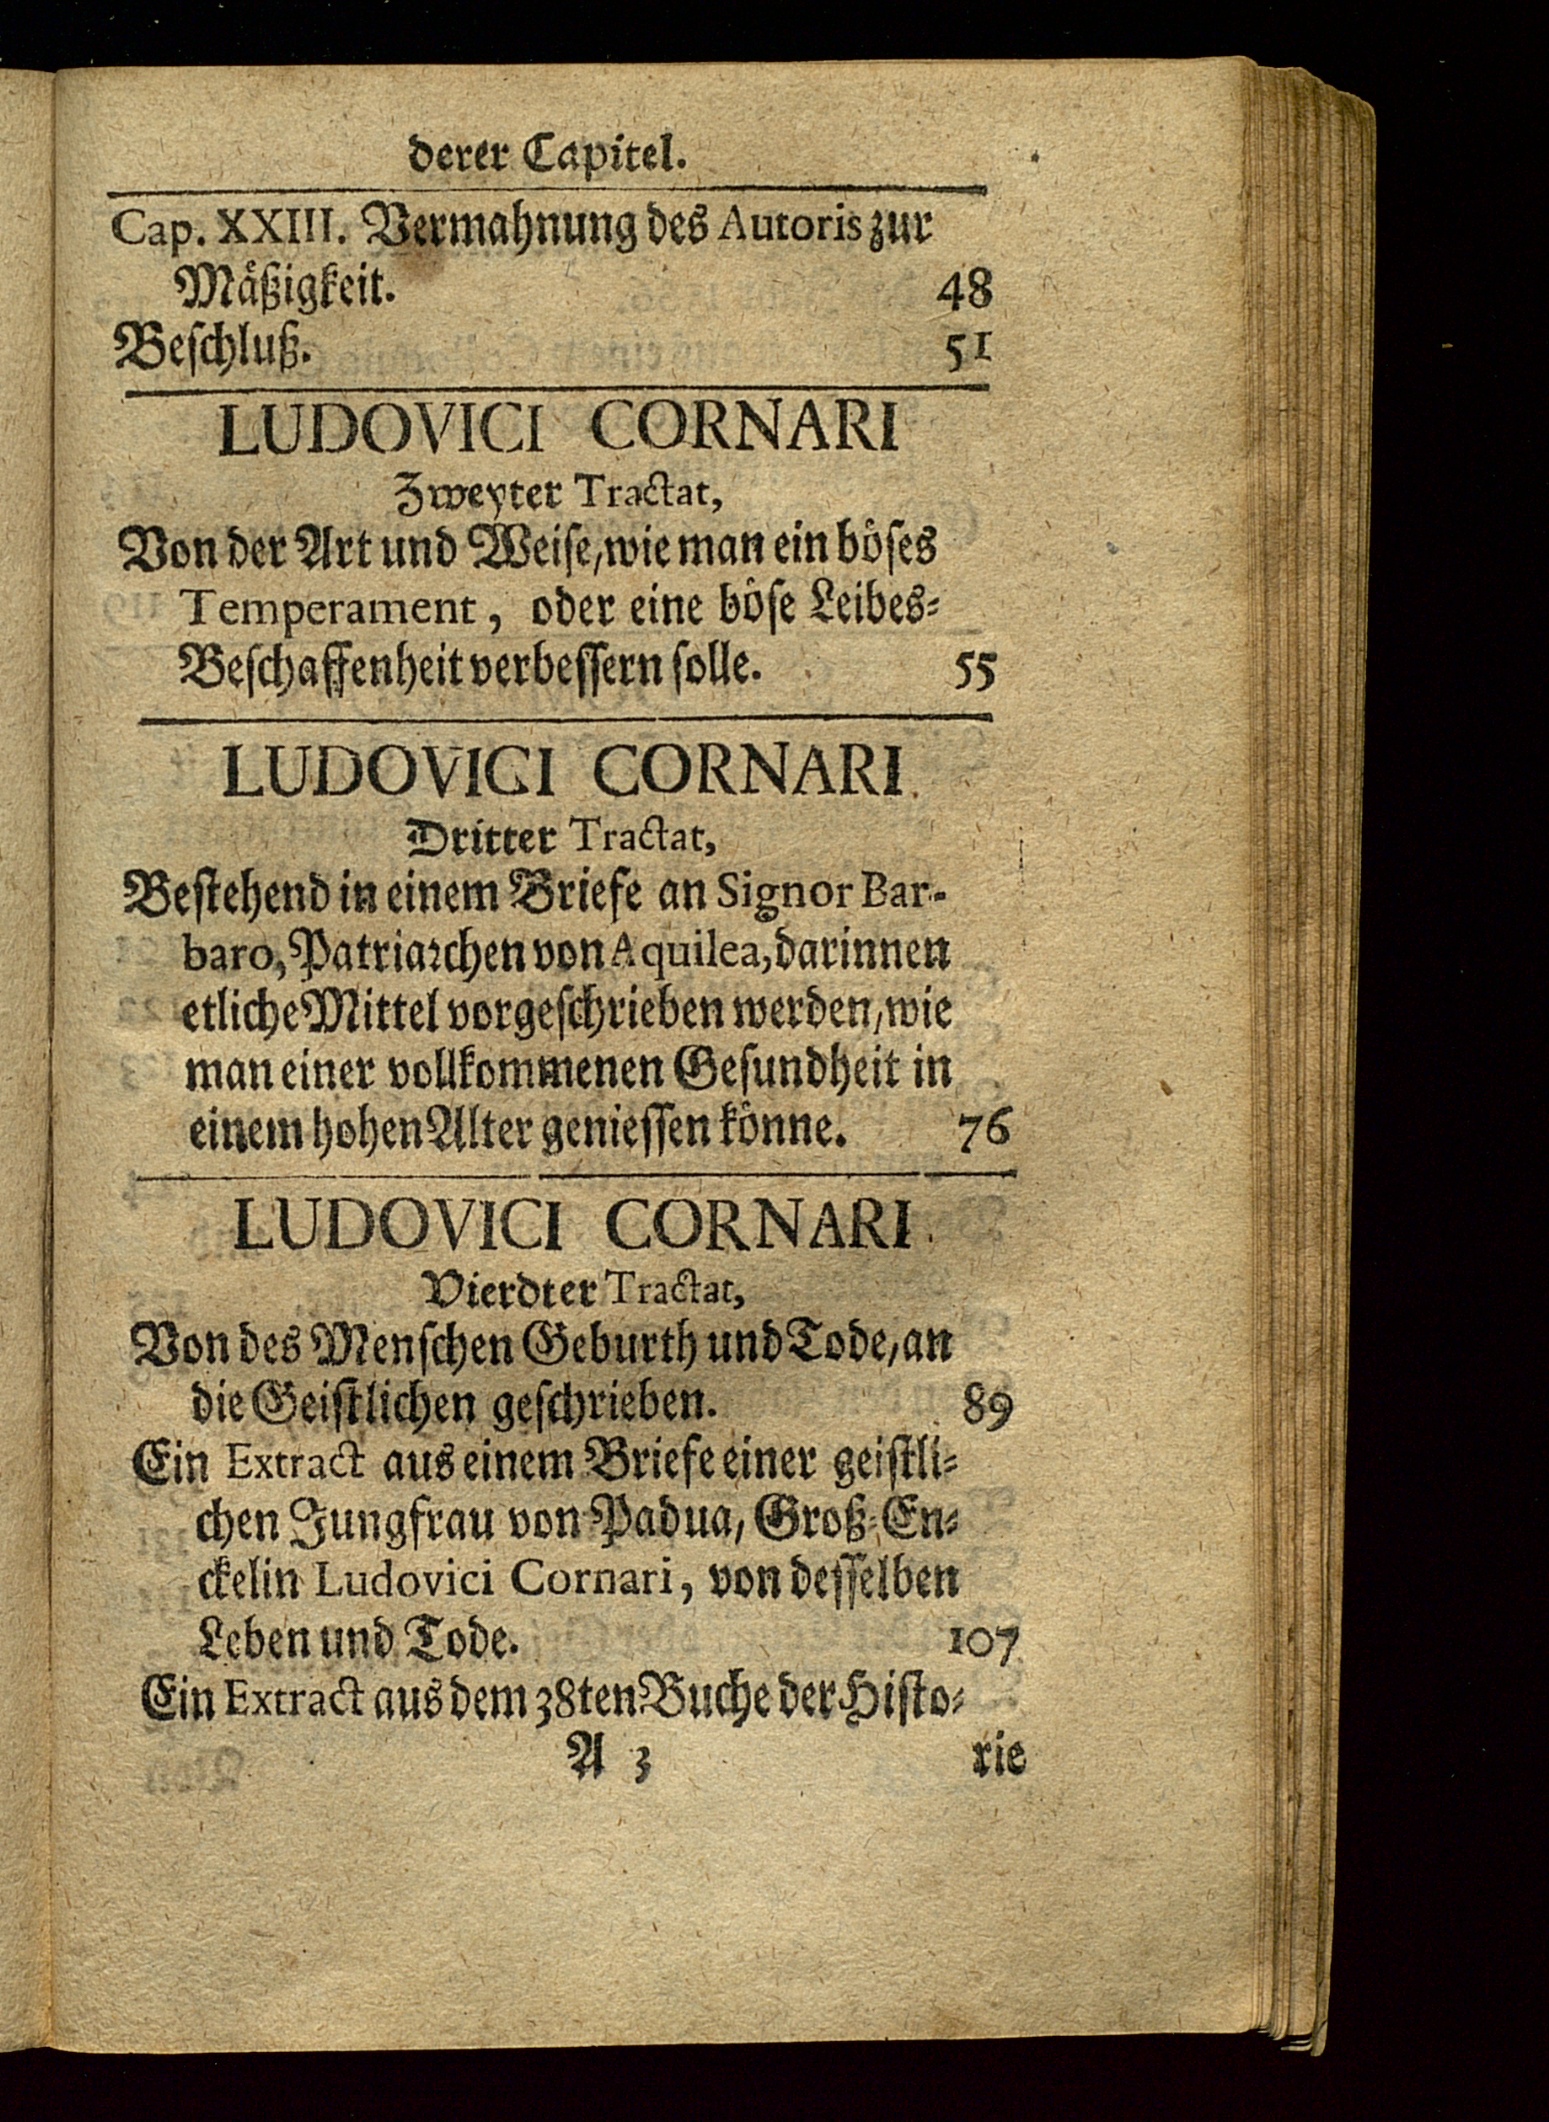 derer Capitel.
Cap. XXIII. Vermahnung des Autoris zur
Mäßigkeit. 48
Beschluß. 51
LUDOVICI CORNARI
Zweyter Tractat,
Von der Art und Weise, wie man ein böses
Temperament, oder eine böse Leibes-
Beschaffenheit verbessern solle. 55
LUDOVICI CORNARI
Dritter Tractat,
Bestehend in einem Briefe an Signor Bar-
baro, Patriarchen von Aquilea, darinnen
etliche Mittel vorgeschrieben werden, wie
man einer vollkommenen Gesundheit in
einem hohen Alter geniessen könne. 76
LUDOVICI CORNARI
Vierdter Tractat,
Von des Menschen Geburth und Tode, an
die Geistlichen geschrieben. 89
Ein Extract aus einem Briefe einer geistli-
chen Jungfrau von Padua, Groß-En-
ckelin Ludovici Cornari, von desselben
Leben und Tode. 107
Ein Extract aus dem 38ten Buche der Histo-
A 3 rie